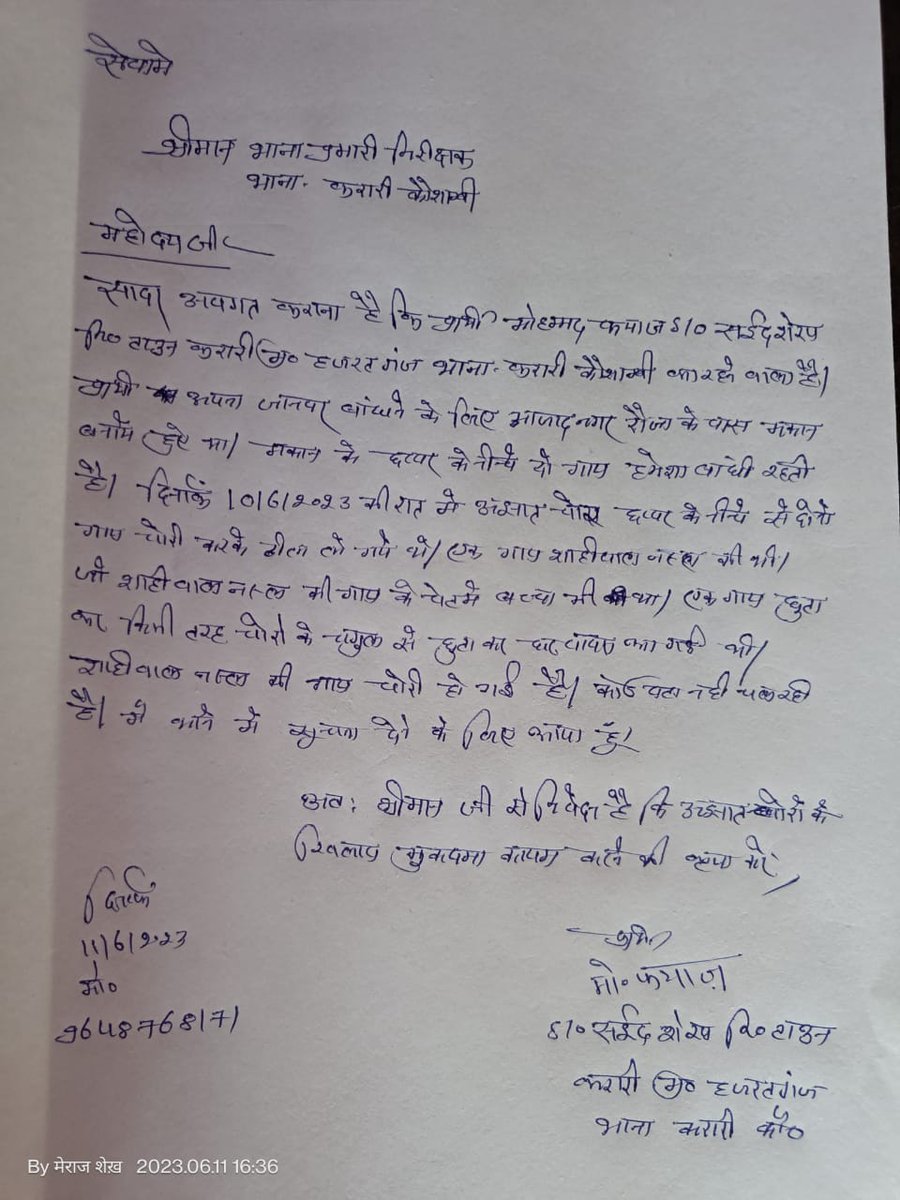 सेवामे
श्रीमान थाना प्रभारी निरीक्षक
थाना- करारी कौशाम्बी
महोदय जी
सादर अवगत कराना है कि प्रार्थी मोहम्मद फयाज S/O सईद शेख
नि० टाउन करारी मु० हजरतगंज थाना- करारी कौशाम्बी का रहने वाला है।
प्रार्थी अपना जानवर बांधने के लिए आजादनगर रौजा के पास मकान
बनाये हुए था। मकान के छप्पर के नीचे दो गाय हमेशा बांधी रहती
है। दिनांक 10/6/2023 की रात मे अज्ञात चोर छप्पर के नीचे से दोनो
गाय चोरी करके लो गये थे। एक गाय शाहीवाल नस्ल की थी।
जो शाहीवाल नस्ल की गाय के पेटमे बच्चा भी था। एक गाय छुटा
कर किसी तरह चोरो के चंगुल से छुटा कर घर वापस आ गई थी।
शाहीवाल नस्ल की गाय चोरी हो गई है। कोई पता नही चल रही
है। मै थाने मे सूचना देने के लिए आया हूँ।
अतः श्रीमान जी से निवेदन है कि अज्ञात चोरों के
खिलाफ मुकदमा कायम करने की कृपा करे
दिनांक
11/6/2023
मो०
9648768171
प्रार्थी
मो० फयाज़
S/O सईद शेख नि० टाउन
करारी मु० हजरतगंज
थाना करारी कौ०
By मेराज शेख़ 2023.06.11 16:36